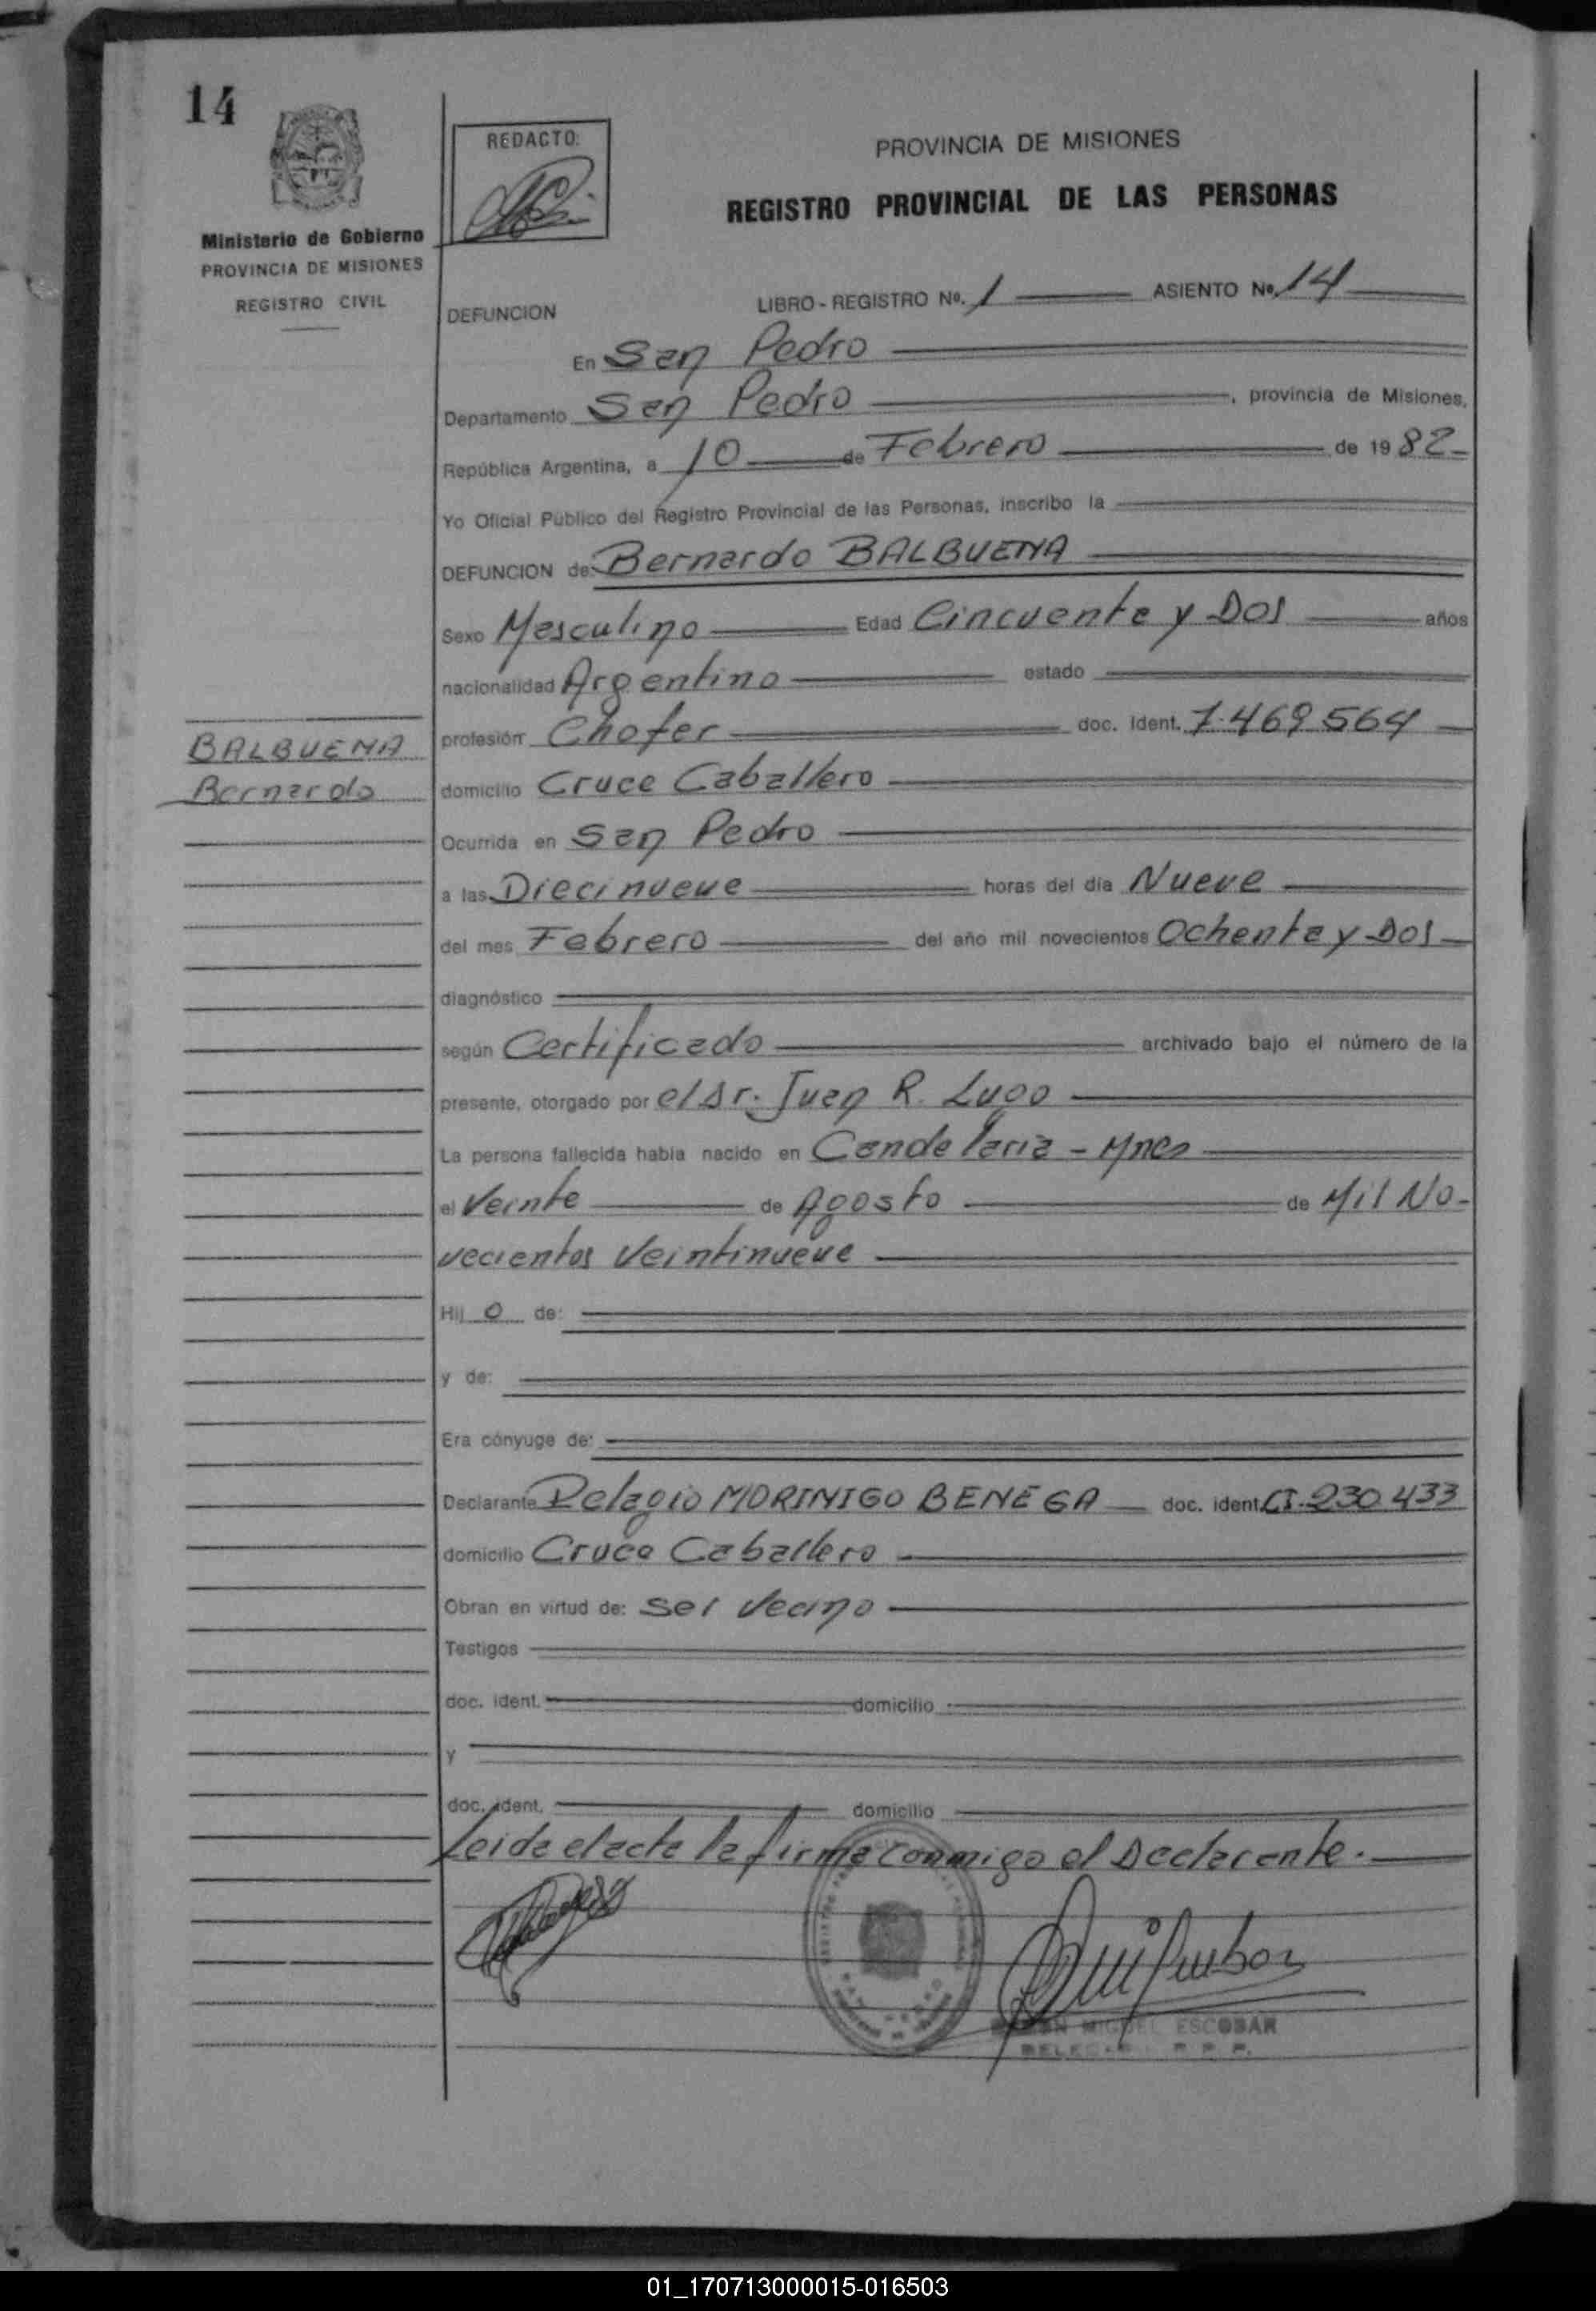 14
REDACTO:
PROVINCIA DE MISIONES
REGISTRO PROVINCIAL DE LAS PERSONAS
Ministerio de Gobierno
PROVINCIA DE MISIONES
REGISTRO CIVIL
DEFUNCION LIBRO - REGISTRO Nº. 1 ASIENTO Nº 14
En San Pedro
Departamento San Pedro, provincia de Misiones,
República Argentina, a 10 de Febrero de 1982
Yo Oficial Público del Registro Provincial de las Personas, inscribo la
DEFUNCION de: Bernardo BALBUENA
Sexo Masculino Edad Cincuenta y Dos años
nacionalidad Argentino estado
profesión Chofer doc. ident. 7.469.564
BALBUENA
Bernardo
domicilio Cruce Caballero
Ocurrida en San Pedro
a las Diecinueve horas del día Nueve
del mes Febrero del año mil novecientos Ochenta y Dos
diagnóstico
según Certificado archivado bajo el número de la
presente, otorgado por el Dr. Juan R. Lugo
La persona fallecida había nacido en Candelaria - Mnes
el Veinte de Agosto de Mil No-
vecientos Veintinueve
Hij o de:
y de:
Era cónyuge de:
Declarante Pelagio MORINIGO BENEGA doc. ident. CI. 230.433
domicilio Cruce Caballero
Obran en virtud de: Ser Vecino
Testigos
doc. ident. domicilio
y
doc. ident. domicilio
Leida el acta la firma conmigo el Declarante.
MIGUEL ESCOBAR
R. P. P.
01_170713000015-016503